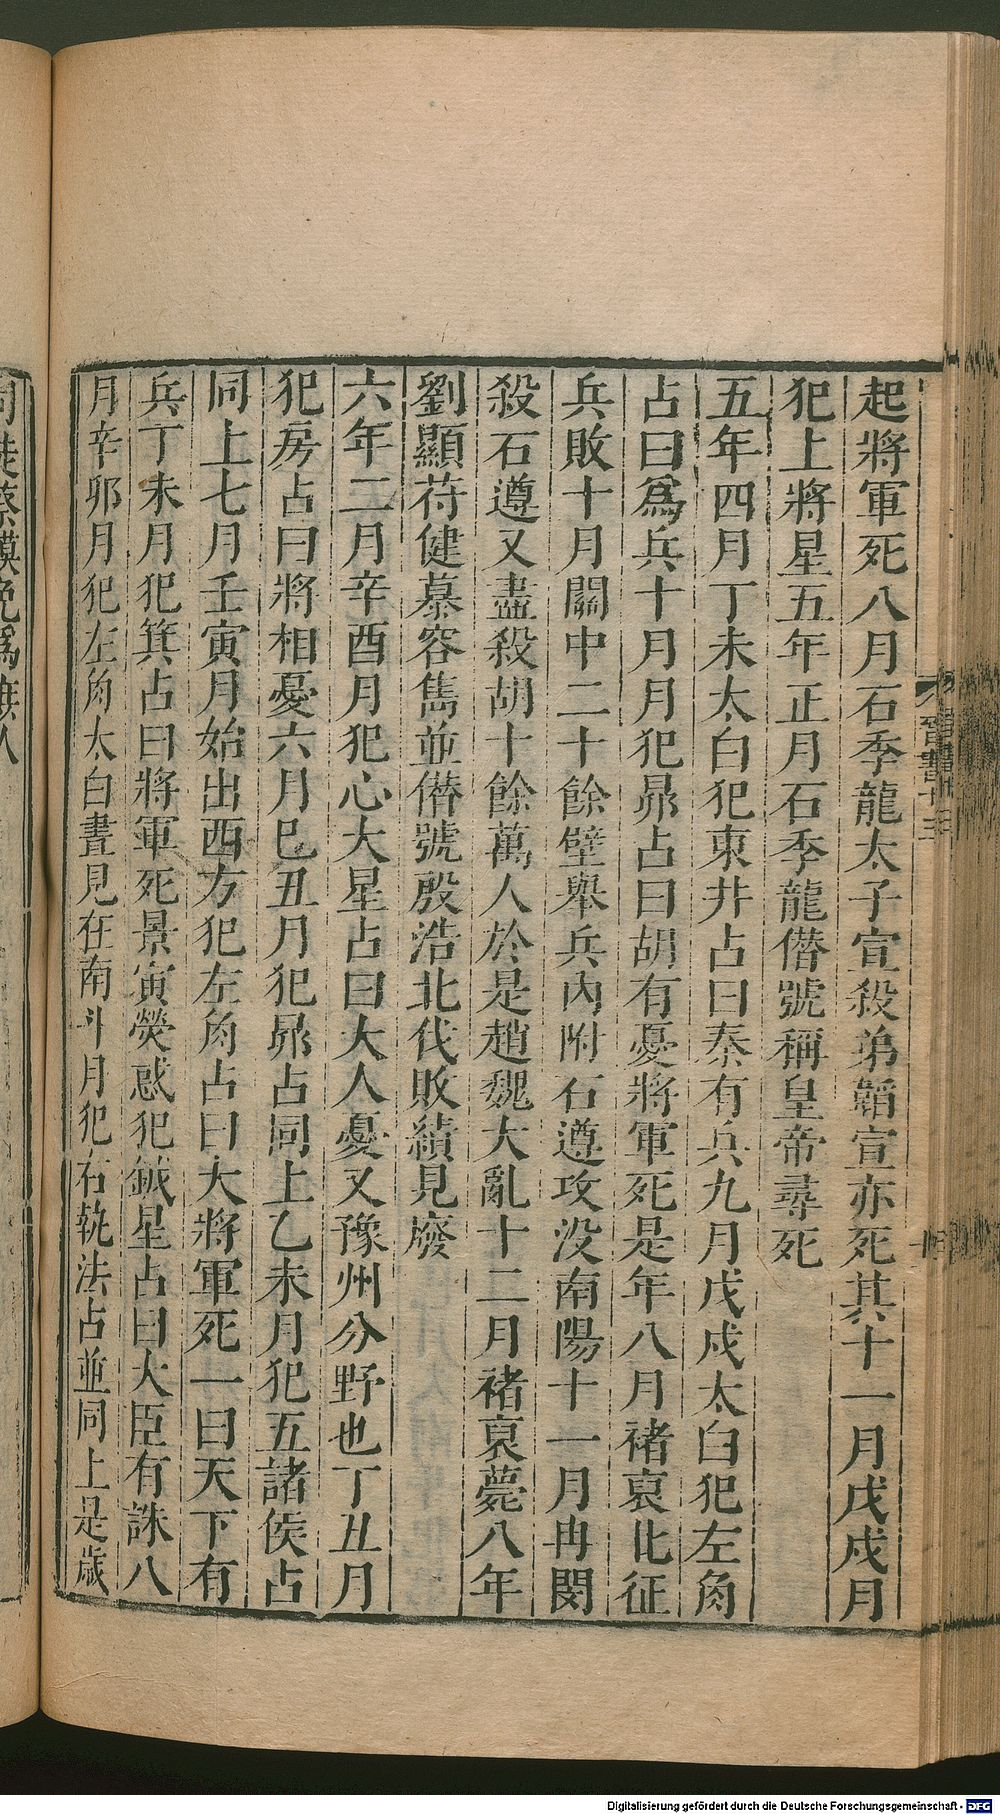 起將軍死八月石季龍太子宣殺弟韜宣亦死其十一月戊戌月
犯上將星五年正月石季龍僣號稱皇帝尋死
五年四月丁未太白犯東井占曰秦有兵九月戊戌太白犯左角
占曰爲兵十月月犯昴占曰胡有憂將軍死是年八月褚裒北征
兵敗十月關中二十餘壁舉兵內附石遵攻没南陽十一月冉閔
殺石遵又盡殺胡十餘萬人於是趙魏大亂十二月褚裒薨八年
劉顯苻健慕容雋並僣號殷浩北伐敗績見廢
六年二月辛酉月犯心大星占曰大人憂又豫州分野也丁丑月
犯房占曰將相憂六月巳丑月犯昴占同上乙未月犯五諸侯占
同上七月壬寅月始出西方犯左角占曰大將軍死一曰天下有
兵丁未月犯箕占曰將軍死景寅熒惑犯鉞星占曰大臣有誅八
月辛卯月犯左角太白晝見在南斗月犯右執法占並同上是歲
司徒蔡謨免爲庶人
晉書十三
Digitalisierung gefördert durch die Deutsche Forschungsgemeinschaft - DFG